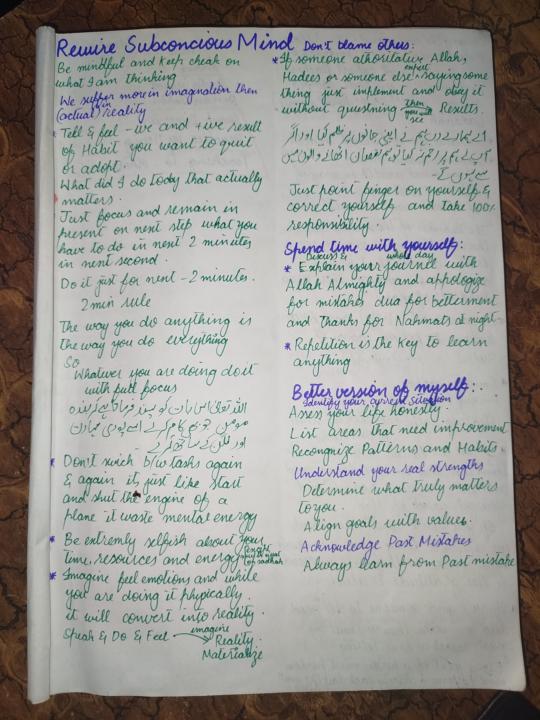 Rewire Subconcious Mind
Be mindful and keep cheak on
what I am thinking
We suffer more in imagination then
in (actual) reality
* Tell & feel -ve and +ive result
of Habit you want to quit
or adopt.
What did I do today that actually
matters.
Just focus and remain in
present on next step what you
have to do in next 2 minutes
in next second.
Do it just for next - 2 minutes.
2 min rule
The way you do anything is
the way you do everything
So
Whatever you are doing do it
with full focus
اللہ تعالیٰ اس بات کو پسند فرماتا ہے کہ بندہ
مومن جو بھی کام کرے اسے پوری مہارت
اور کے ساتھ کرے
* Don't swich b/w tasks again
& again it, just like start
and shut the engine of a
plane it waste mental energy
* Be extremly selfish about your
time, resources and energy
* Imagine feel emotions and while
you are doing it phyically.
it will convert into reality
Speak & Do & Feel imagine Reality.
Materialize
Don't blame others:
* If someone athoritative Allah,
Hadees or someone else expert saying some
thing just implement and obey it
without questning then you will see Results.
اے ہمارے رب ہم نے اپنی جانوں پر ظلم کیا اور اگر
آپ نے ہم پر رحم نہ کیا تو ہم نقصان اٹھانے والوں میں
سے ہوں گے۔
Just point finger on yourself &
correct yourself and take 100%
responsibility.
Spend time with yourself:
* Discuss & Explain your whole day journel with
Allah Almighty and appologize
for mistakes dua for betterment
and thanks for Nahmats at night
* Repetition is the Key to learn
anything
Better version of myself:
Identify your current situation
Assess your life honestly.
List areas that need improvement
Recognize Patterns and Habits.
Understand your real strengths
Determine what truly matters
to you.
Align goals with values.
Acknowledge Past Mistakes
Always learn from Past mistake